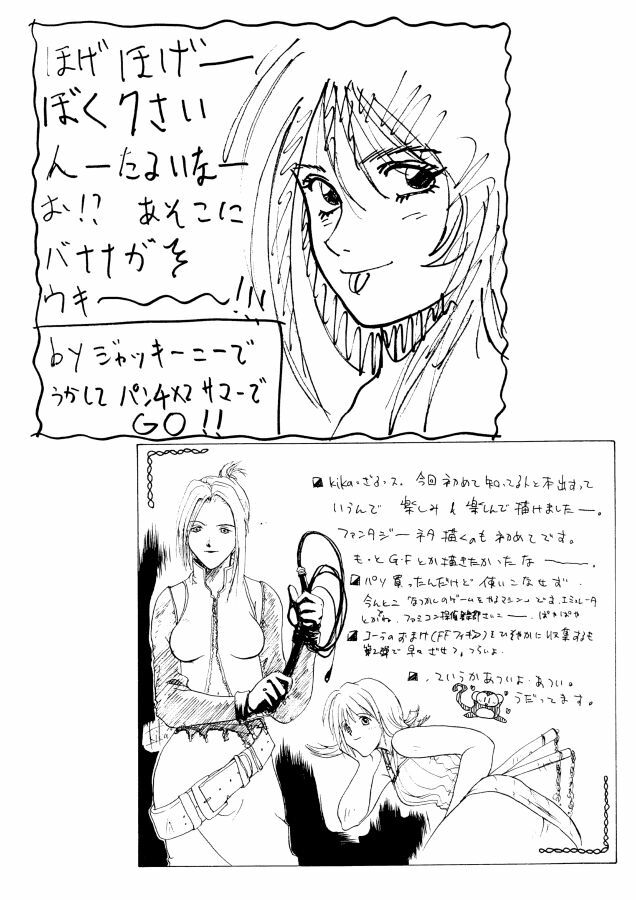 ほげほげー
ぼくクさい
んーたるいなー
お!? あそこに
バナナがそ
ウキー〜〜!!!
byジャッキーニーで
うかして パンチ×2 サマーで
GO!!
kikaざるっス. 今回 初めて 知ってる人と本出すって
いうんで 楽しみ 楽しんで 描けましたー。
ファンタジーネタ 描くのも 初めてです。
もっとG・Fとか描きたかったなー.
パソ買ったんだけど使いこなせず.
今んとこ「なつかしのゲームをやるマシン」でま.エミュレータ
とかね. ファミコン探偵倶楽部さいこー. ぱやぱや
コーラのおまけ(FFフィギュア)をひそやかに収集するも
第2弾で早 ざせつ. つらいよ.
.ていうかあついよ.あつい。
うだってます。